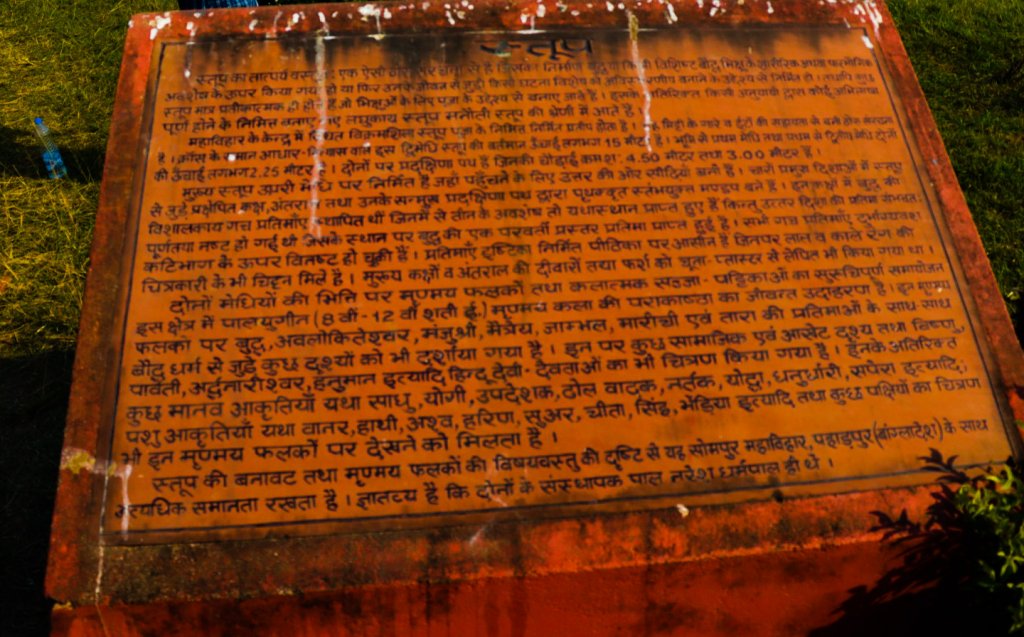 स्तूप
स्तूप का तात्पर्य वस्तुतः एक ऐसी संरचना से है जिसका निर्माण बुद्ध या किसी विशिष्ट बौद्ध भिक्षु के शारीरिक अथवा पारभोगिक
अवशेष के ऊपर किया गया हो या फिर उनके जीवन से जुड़ी किसी घटना विशेष को अविस्मरणीय बनाने के उद्देश्य से निर्मित हो ।
स्तूप मात्र प्रतीकात्मक ही होते हैं जो भिक्षुओं के लिए पूजा के उद्देश्य से बनाए जाते हैं । इसके अतिरिक्त किसी अनुयायी द्वारा कोई अभिलाषा
पूर्ण होने के निमित्त बनाए गए लघुकाय स्तूप मनौती स्तूप की श्रेणी में आते हैं ।
महाविहार के केन्द्र में स्थित विक्रमशिला स्तूप पूजा के निमित्त निर्मित प्रतीत होता है । मिट्टी के गारे व ईंटों की सहायता से बनी ठोस संरचना
है । क्रॉस के समान आधार-विन्यास वाले इस द्विमेधि स्तूप की वर्तमान ऊँचाई लगभग 15 मीटर है । भूमि से प्रथम मेधि तथा प्रथम से द्वितीय मेधि दोनों
की ऊँचाई लगभग 2.25 मीटर है । दोनों पर प्रदक्षिणा पथ है जिनकी चौड़ाई क्रमशः 4.50 मीटर तथा 3.00 मीटर है ।
मुख्य स्तूप ऊपरी मेधि पर निर्मित है जहाँ पहुँचने के लिए उत्तर की ओर सीढ़ियाँ बनी हैं । चारों प्रमुख दिशाओं में स्तूप
से जुड़े प्रक्षेपित कक्ष, अंतराल तथा उनके सन्मुख प्रदक्षिणा पथ द्वारा पृथककृत स्तंभयुक्त मण्डप बने हैं । इन कक्षों में बुद्ध की
विशालकाय गच प्रतिमाएँ स्थापित थीं जिनमें से तीन के अवशेष तो यथास्थान प्राप्त हुए हैं किन्तु उत्तर दिशा की प्रतिमा संभवतः
पूर्णतया नष्ट हो गई थी जिसके स्थान पर बुद्ध की एक परवर्ती प्रस्तर प्रतिमा प्राप्त हुई है । सभी गच प्रतिमाएँ दुर्भाग्यवश
कटिभाग के ऊपर विनष्ट हो चुकी हैं । प्रतिमाएँ इष्टिका निर्मित पीठिका पर आसीन हैं जिनपर लाल व काले रंग की
चित्रकारी के भी चिह्न मिले हैं । मुख्य कक्षों व अंतराल की दीवारों तथा फर्श को चूना-प्लास्टर से लेपित भी किया गया था ।
दोनों मेधियों की भित्ति पर मृण्मय फलकों तथा कलात्मक सज्जा पट्टिकाओं का सुरुचिपूर्ण समायोजन
इस क्षेत्र में पालयुगीन (8 वीं-12 वीं शती ई.) मृण्मय कला की पराकाष्ठा का जीवन्त उदाहरण है । इन मृण्मय
फलकों पर बुद्ध, अवलोकितेश्वर, मंजुश्री, मैत्रेय, जाम्भल, मारीची एवं तारा की प्रतिमाओं के साथ-साथ
बौद्ध धर्म से जुड़े कुछ दृश्यों को भी दर्शाया गया है । इन पर कुछ सामाजिक एवं आखेट दृश्य तथा विष्णु,
पार्वती, अर्द्धनारीश्वर, हनुमान इत्यादि हिन्दू देवी-देवताओं का भी चित्रण किया गया है । इनके अतिरिक्त
कुछ मानव आकृतियाँ यथा साधु, योगी, उपदेशक, ढोल वादक, नर्तक, योद्धा, धनुर्धारी, सपेरा इत्यादि;
पशु आकृतियाँ यथा वानर, हाथी, अश्व, हरिण, सुअर, चीता, सिंह, भेड़िया इत्यादि तथा कुछ पक्षियों का चित्रण
भी इन मृण्मय फलकों पर देखने को मिलता है ।
स्तूप की बनावट तथा मृण्मय फलकों की विषयवस्तु की दृष्टि से यह सोमपुर महाविहार, पहाड़पुर (बांग्लादेश) के साथ
अत्यधिक समानता रखता है । ज्ञातव्य है कि दोनों के संस्थापक पाल नरेश धर्मपाल ही थे ।